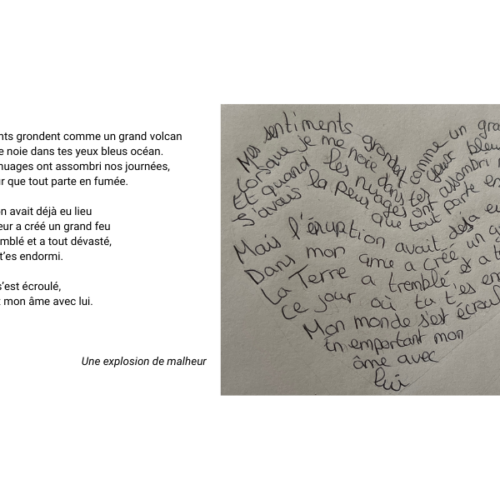 nts grondent comme un grand volcan
e noie dans tes yeux bleus océan.
nuages ont assombri nos journées,
r que tout parte en fumée.
n avait déjà eu lieu
eur a créé un grand feu
mblé et a tout dévasté,
t'es endormi.
s'est écroulé,
t mon âme avec lui.
Une explosion de malheur
Mes sentiments grondent comme un gra
Lorsque je me noie dans tes yeux bleu
Et quand les nuages ont assombri
J'avais la peur que tout parte en
Mais l'éruption avait déjà eu
Dans mon âme a créé un
La Terre a tremblé et a t
ce jour où tu t'es en
Mon monde s'est écroul
En emportant mon
âme avec
lui